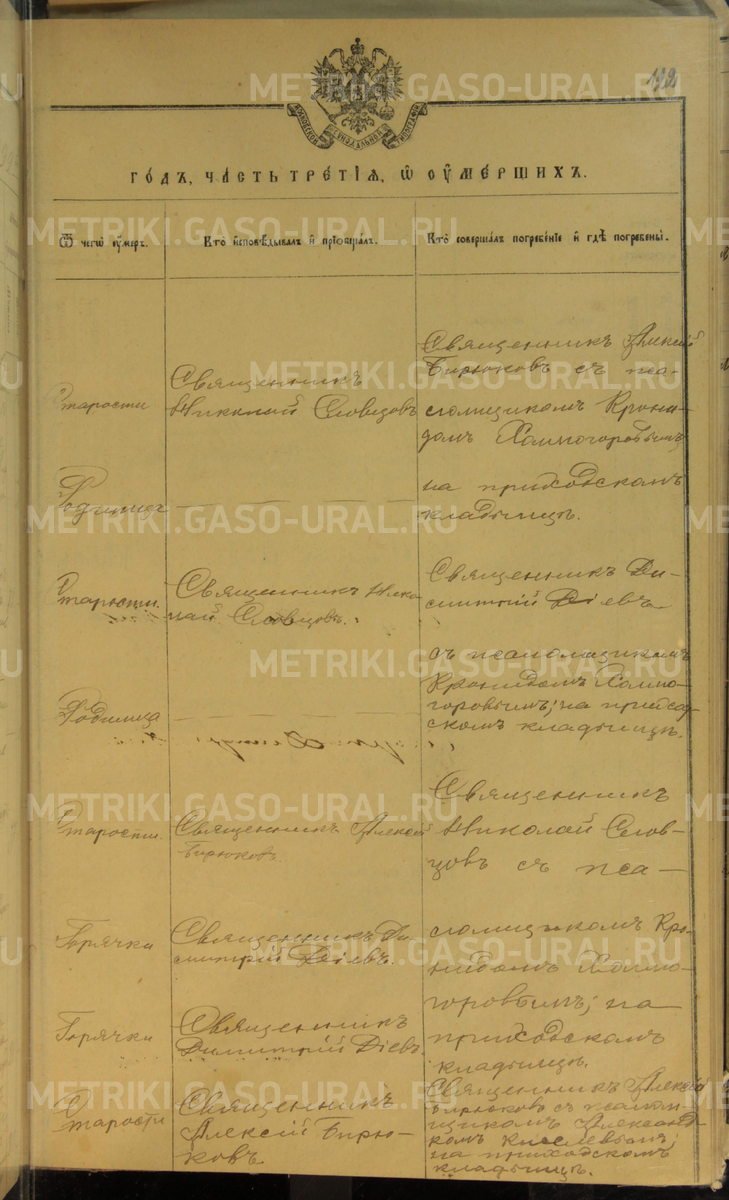 192
ГОДЪ, ЧАСТЬ ТРЕТІЯ, Ѿ ОУМЕРШИХЪ.
Ѿ чегѡ оумеръ.
Кто исповѣдывалъ и пріобщалъ.
Кто совершалъ погребеніе и гдѣ погребены.
Старости
Священникъ
Николай Словцовъ
Священникъ Алексій
Бирюковъ съ пса-
ломщикомъ Крони-
домъ Холмогоровымъ
на приходскомъ
кладбищѣ.
Родимца
Старости.
Священникъ Нико-
лай Словцовъ.
Священникъ Ди-
митрій Діевъ
съ псаломщикомъ
Кронидомъ Холмо-
горовымъ; на приход-
скомъ кладбищѣ.
Родимца
Старости.
Священникъ Алексій
Бирюковъ.
Священникъ
Николай Слов-
цовъ съ пса-
ломщикомъ Кро-
нидомъ Холмо-
горовымъ; на
приходскомъ
кладбищѣ.
Горячки
Священникъ Ди-
митрій Діевъ.
Горячки
Священникъ
Димитрій Діевъ.
Старости
Священникъ
Алексій Бирю-
ковъ.
Священникъ Алексій
Бирюковъ съ псалом-
щикомъ Александ-
комъ Киселевымъ;
на приходскомъ
кладбищѣ.
METRIKI.GASO-URAL.RU